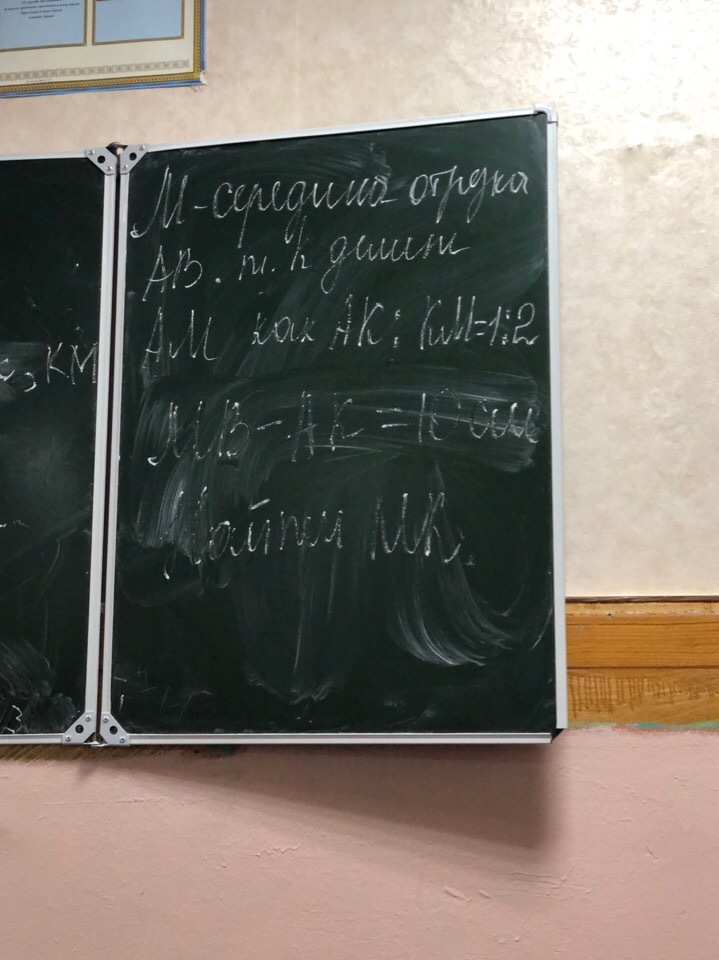 М-середина отрзка
АВ. т. К делит
АМ как АК: КМ=1:2
с, КМ
МВ - АК = 10 см
Найти МК.